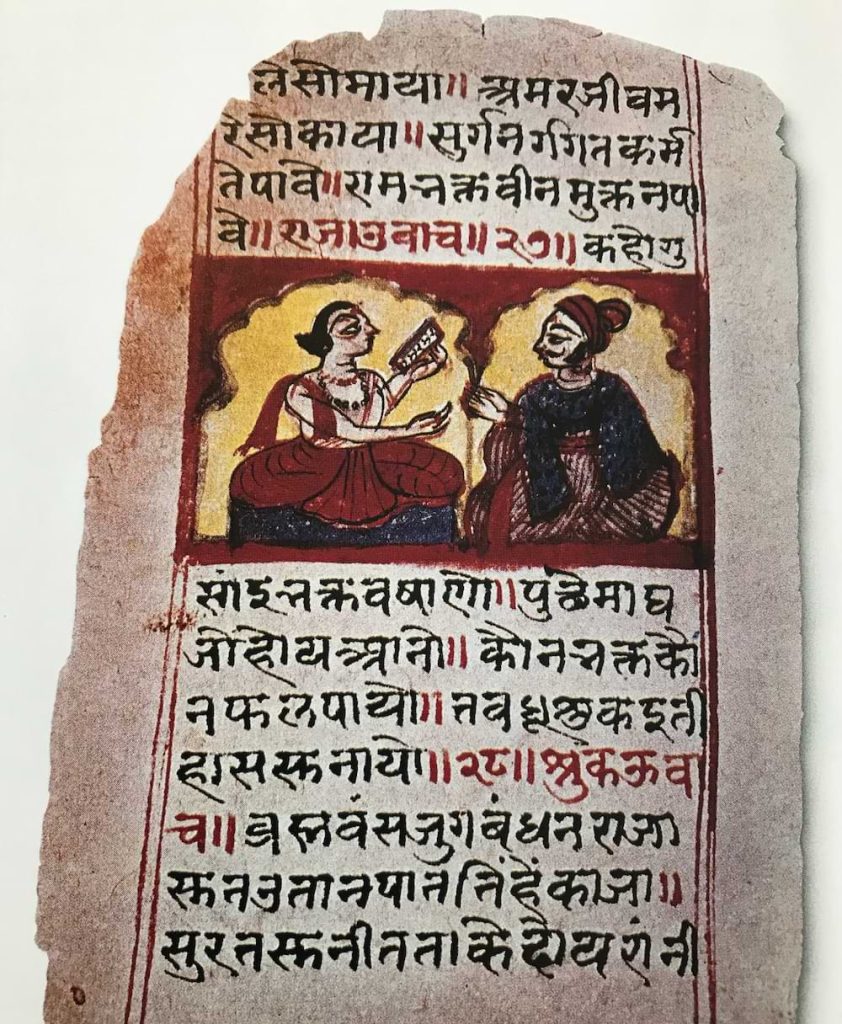 लेसोमाया॥ अमरजीवम
रेसोकाया॥ सुर्गनर्गगितकर्म
तेपावे॥ रामभक्तवीनमुक्तनपा
वे॥ राजाउवाच॥ २७॥ कहोगु
सांइभक्तवषाणो॥ पुछेमाघ
जोहोयआनो॥ कौनभक्तको
नफलपायो॥ तवध्रूकइती
हाससुनायो॥ २८॥ श्रुकऊव
च॥ सजुगबंधनराजा
सुतउतानपाततिंहेंकाजा॥
सुरतसुनीतताकेदोयरांनी